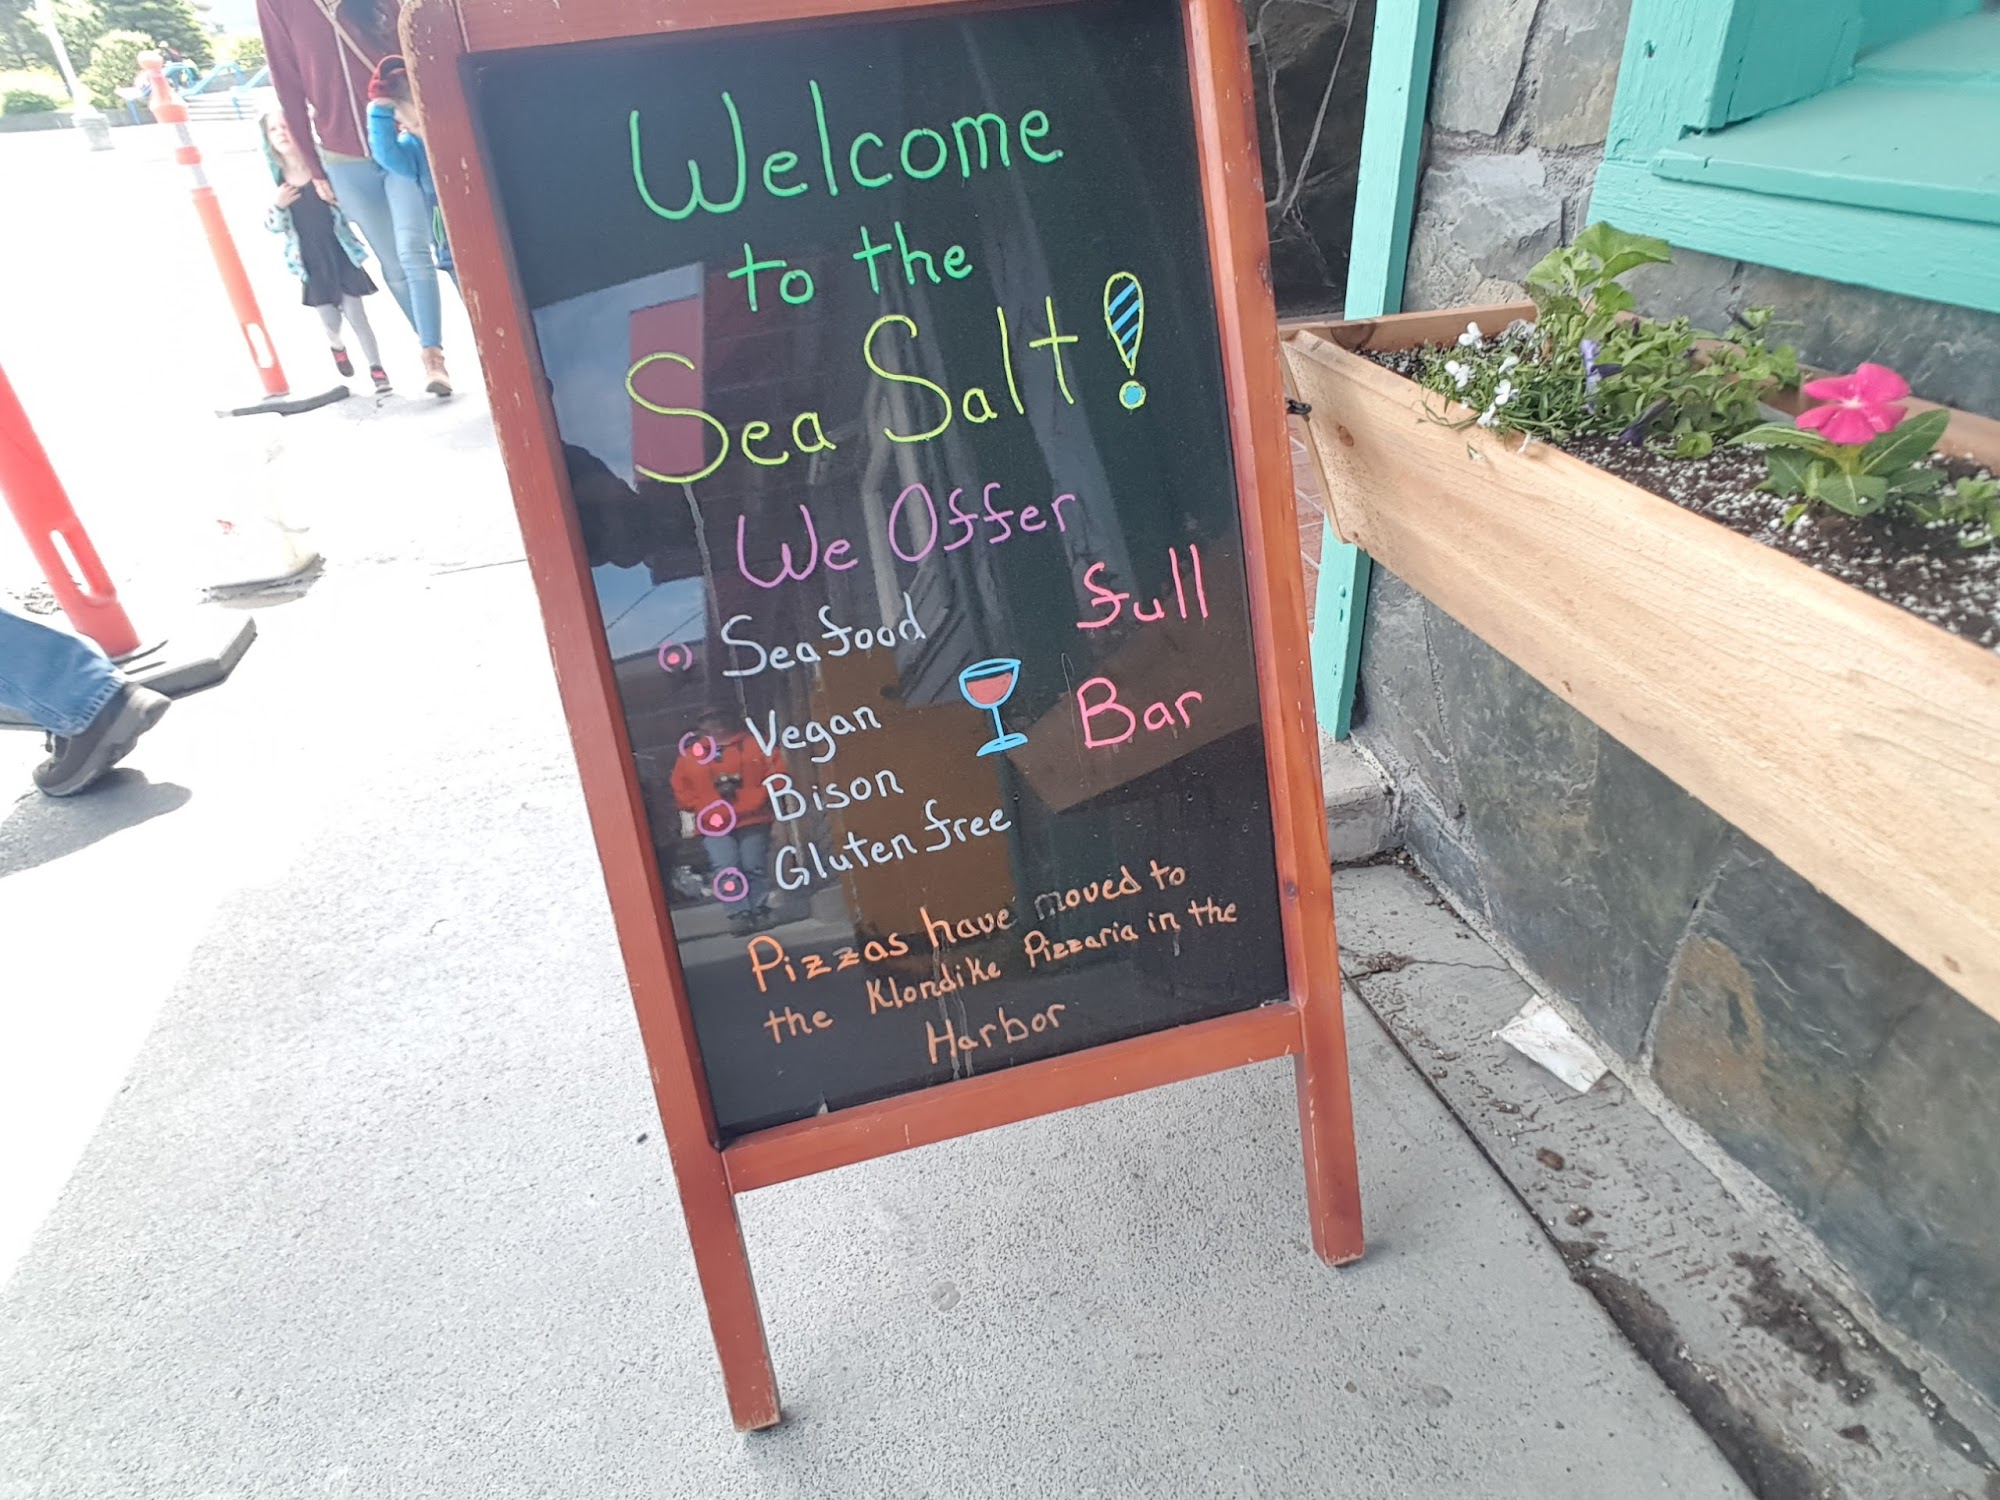 Welcome
to the
Sea Salt!
We Offer
Seafood
Vegan
Bison
Gluten free
full
Bar
Pizzas have moved to
the Klondike Pizzaria in the
Harbor